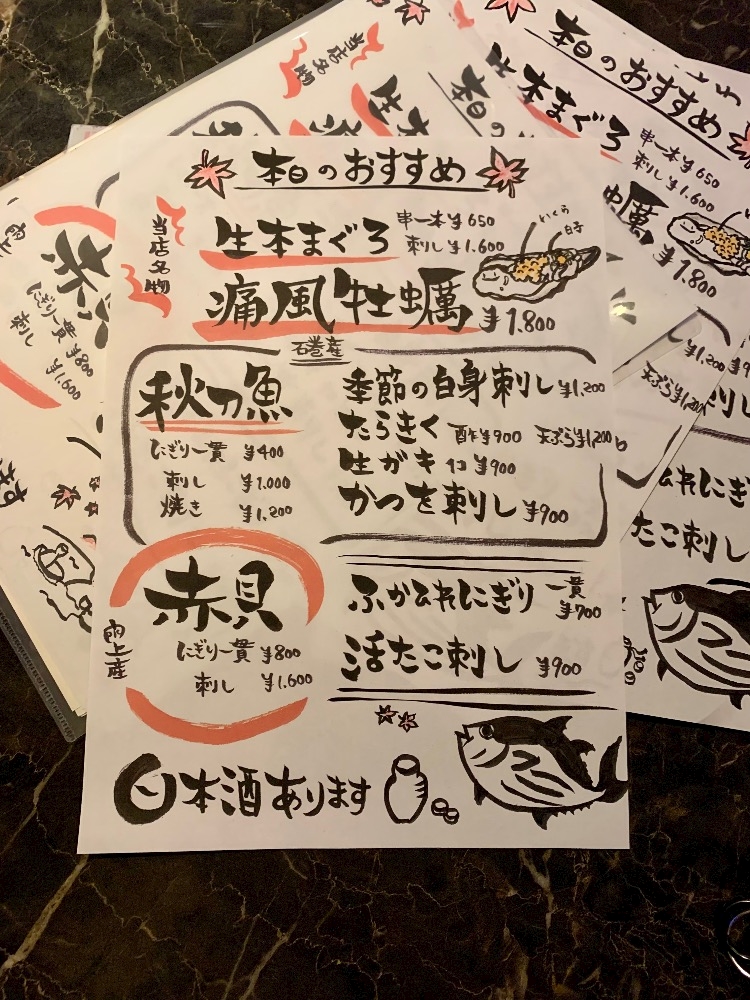 本日のおすすめ
当店名物
生本まぐろ 串一本¥650
刺し¥1.600
いくら
白子
痛風牡蠣 ¥1.800
石巻産
秋刀魚
にぎり一貫 ¥400
刺し ¥1.000
焼き ¥1.200
季節の白身刺し ¥1,200
たらきく 酢¥900 天ぷら¥1,200
生ガキ 1コ ¥900
かつを刺し ¥900
閖上産
赤貝
にぎり一貫 ¥800
刺し ¥1.600
ふかひれにぎり 一貫 ¥700
活たこ刺し ¥900
日本酒あります
本日のおすすめ
生本まぐろ
串一本¥650
刺し¥1.600
蠣
¥1.800
当店名物
生本
本日の
にぎり一貫 ¥800
刺し ¥1.600
¥1,200
天ぷら¥1,200
れにぎ
たこ刺し